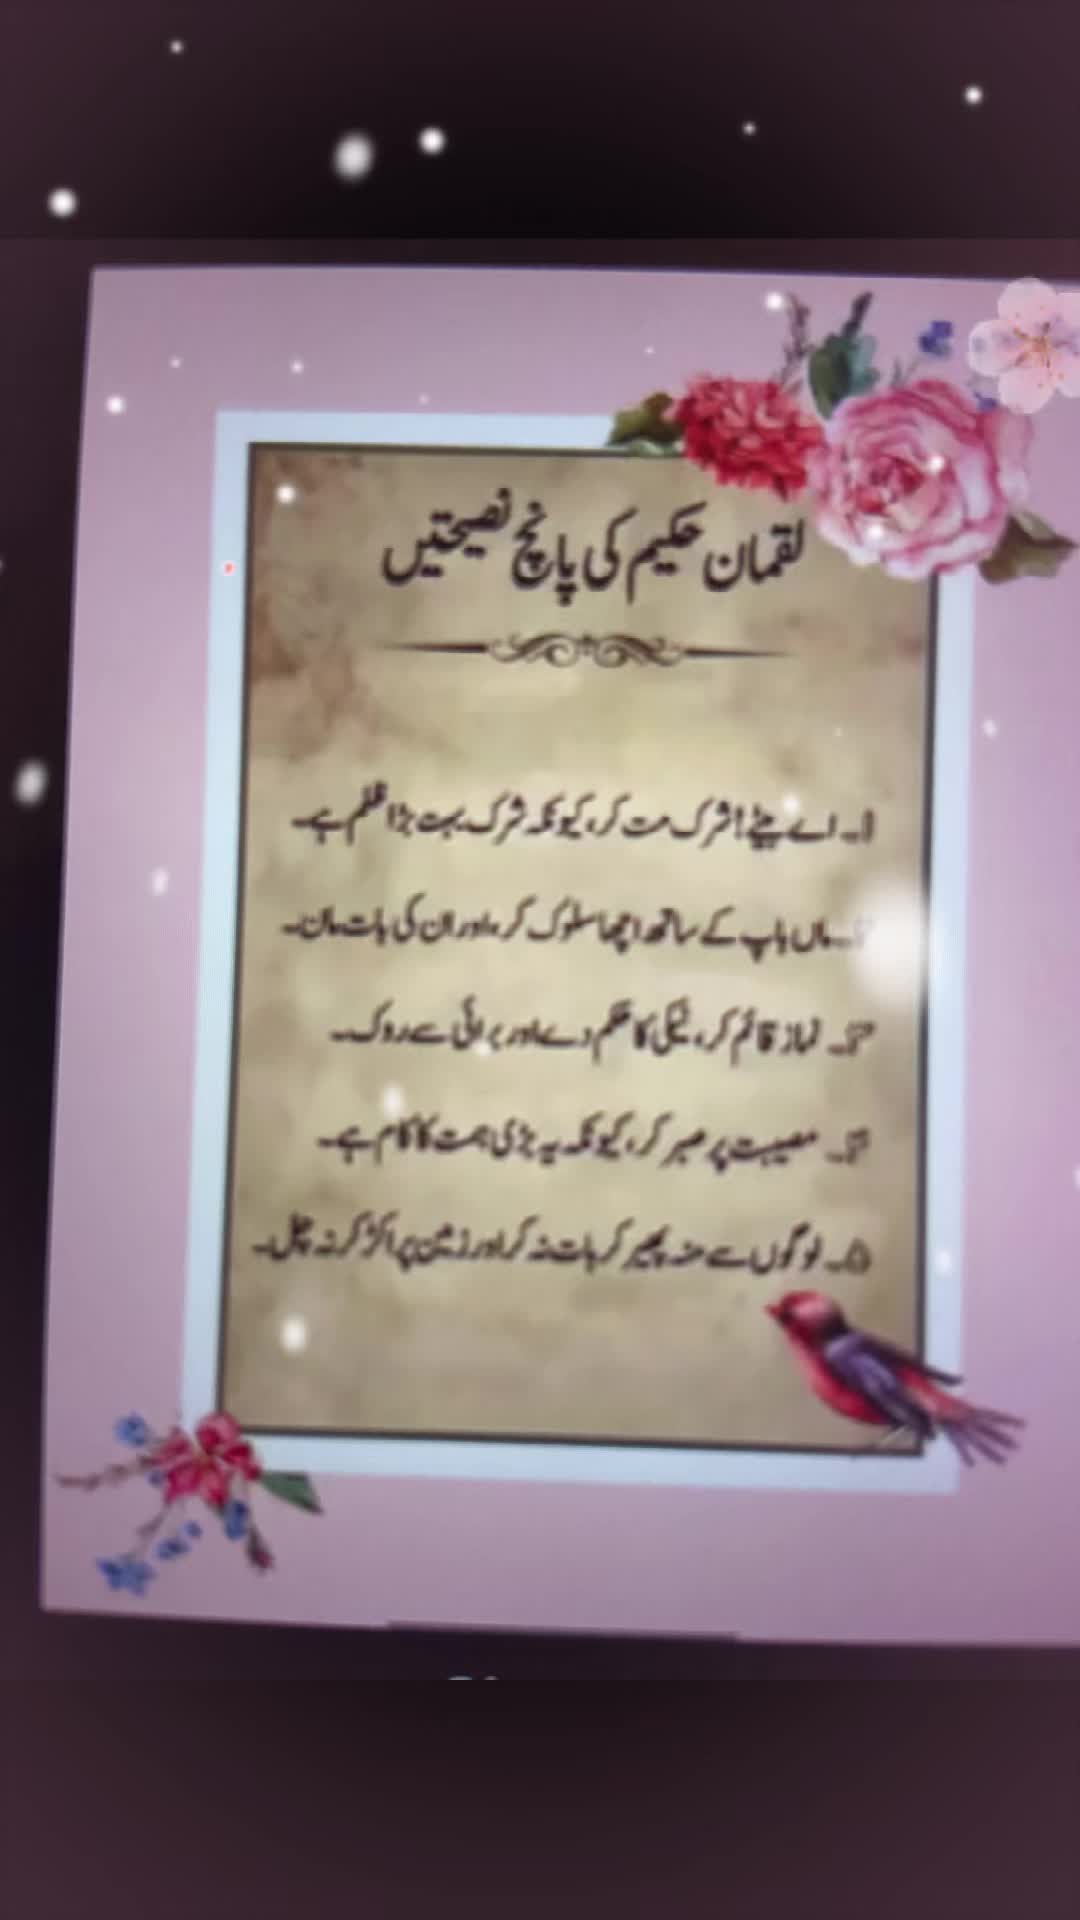 لقمان حکیم کی پانچ نصیحتیں
۱۔ اے بیٹے! شرک مت کر، کیونکہ شرک بہت بڑا ظلم ہے۔
۲۔ ماں باپ کے ساتھ اچھا سلوک کر، اور ان کی بات مان۔
۳۔ نماز قائم کر، نیکی کا حکم دے اور برائی سے روک۔
۴۔ مصیبت پر صبر کر، کیونکہ یہ بڑی ہمت کا کام ہے۔
۵۔ لوگوں سے منہ پھیر کر بات نہ کر اور زمین پر اکڑ کر نہ چل۔